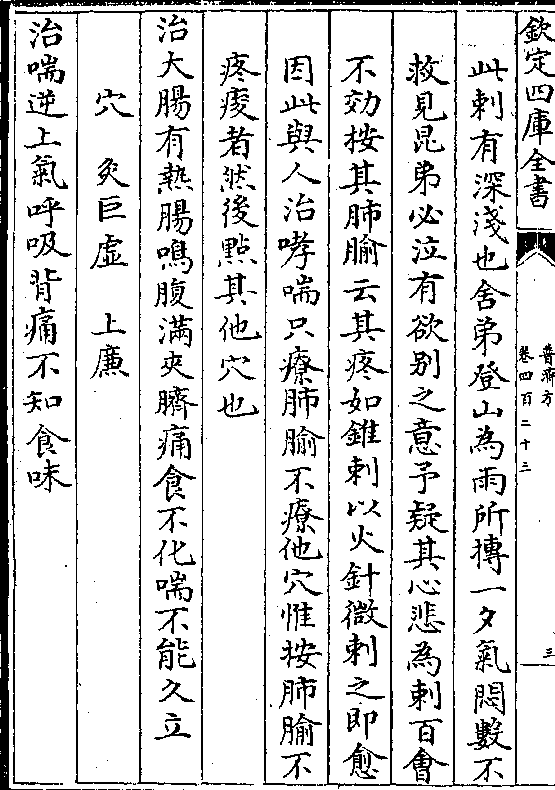 欽定四庫全書
普濟方
卷四百二十三
三
此刺有深淺也舍弟登山為雨所摶一夕氣悶數不
救見昆弟必泣有欲别之意予疑其心悲為刺百㑹
不効按其肺腧云其疼如錐刺以火針微刺之即愈
因此與人治哮喘只療肺腧不療他穴惟按肺腧不
疼痠者然後㸃其他穴也
治大腸有熱腸鳴腹滿夾臍痛食不化喘不能久立
穴 灸巨虛 上廉
治喘逆上氣呼吸背痛不知食味